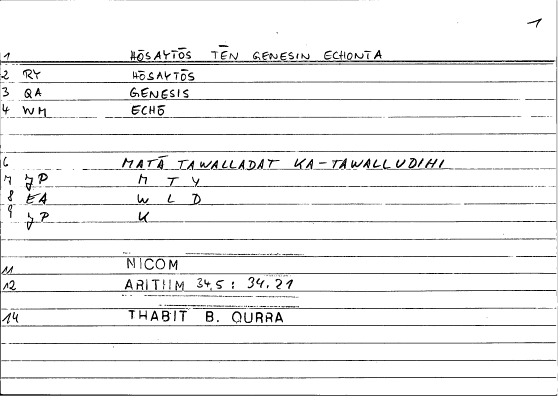 1
1 HŌSAYTŌS TĒN GENESIN ECHONTA
2 RY HŌSAYTŌS
3 QA GENESIS
4 WM ECHŌ
6 MATĀ TAWALLADAT KA-TAWALLUDIHI
7 JP M T Y
8 EA W L D
9 JP K
11 NICOM
12 ARITHM 34,5 : 34.21
14 THABIT B. QURRA